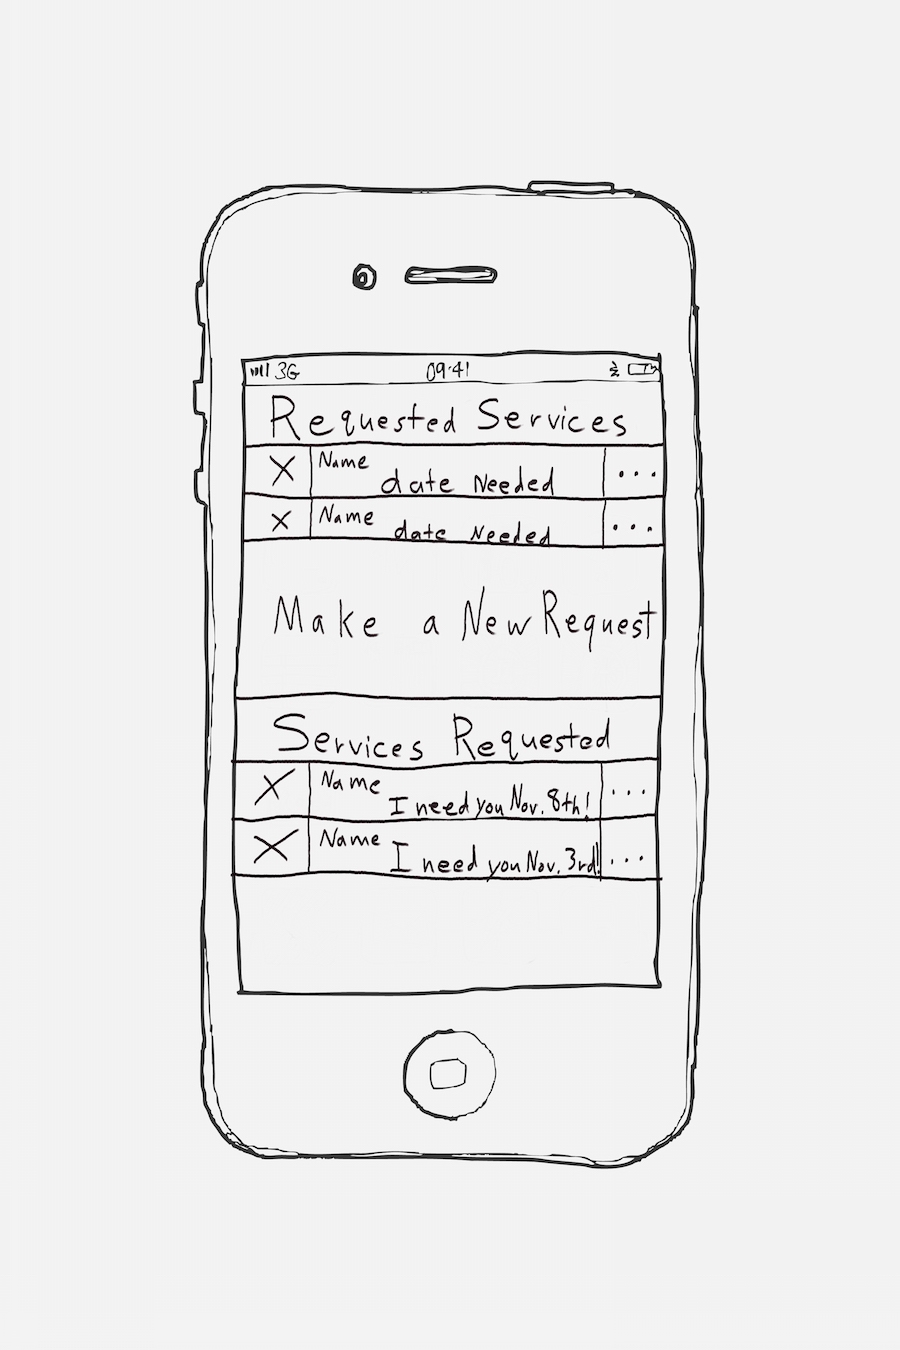 3G 09:41
Requested Services
X Name
date Needed ...
X Name
date Needed ...
Make a New Request
Services Requested
X Name
I need you Nov. 8th! ...
X Name
I need you Nov. 3rd! ...